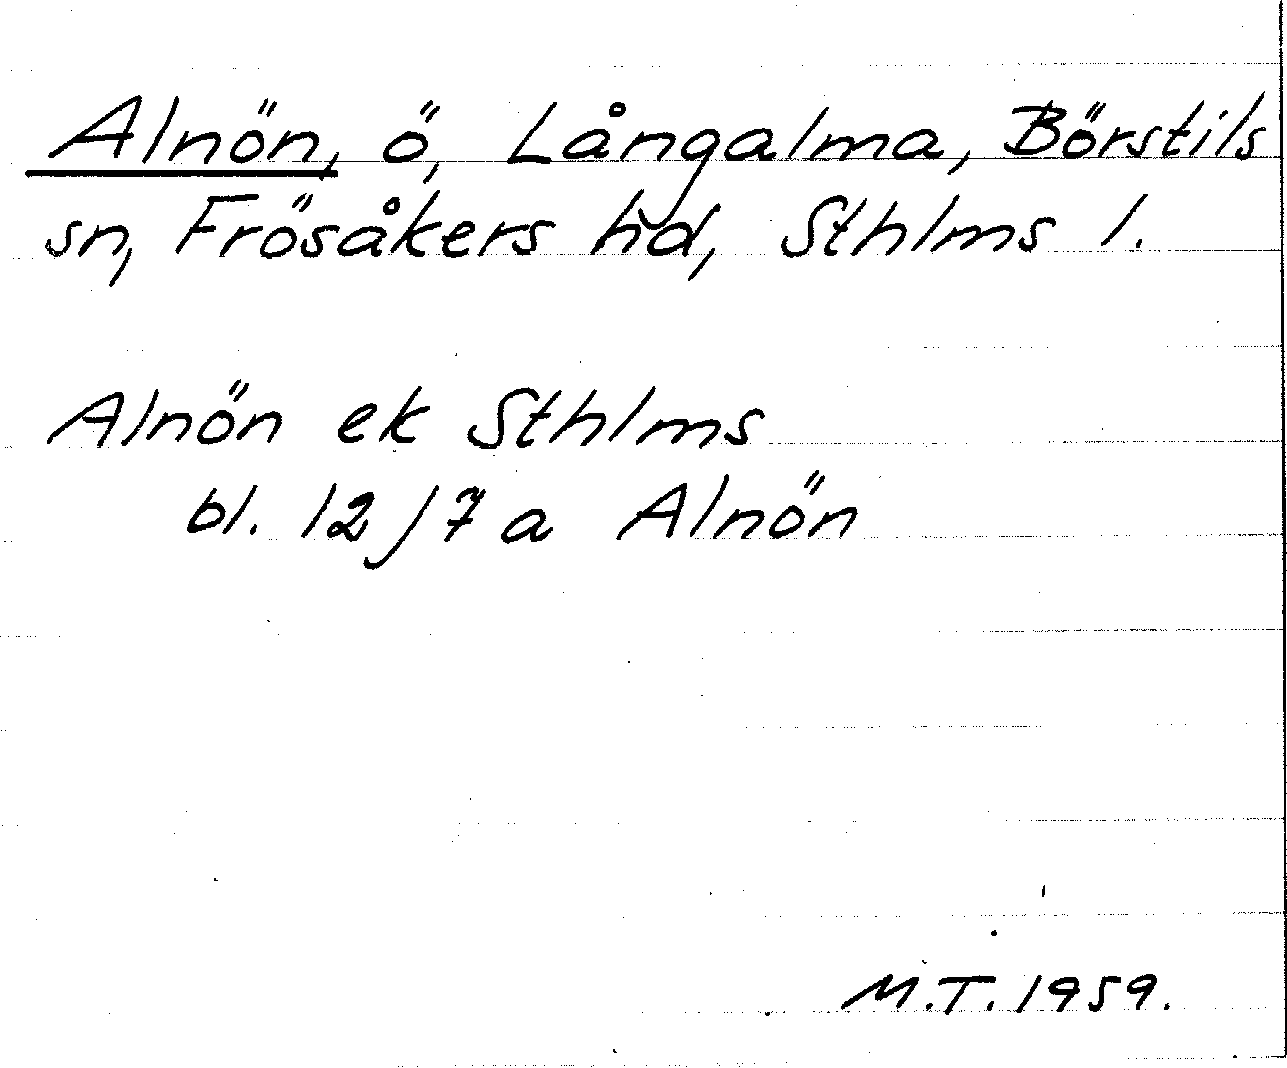 Alnön, ö, Långalma, Börstils
sn, Frösåkers hd, Sthlms l.
Alnön ek Sthlms
bl. 12 J 7 a Alnön
M.T. 1959.